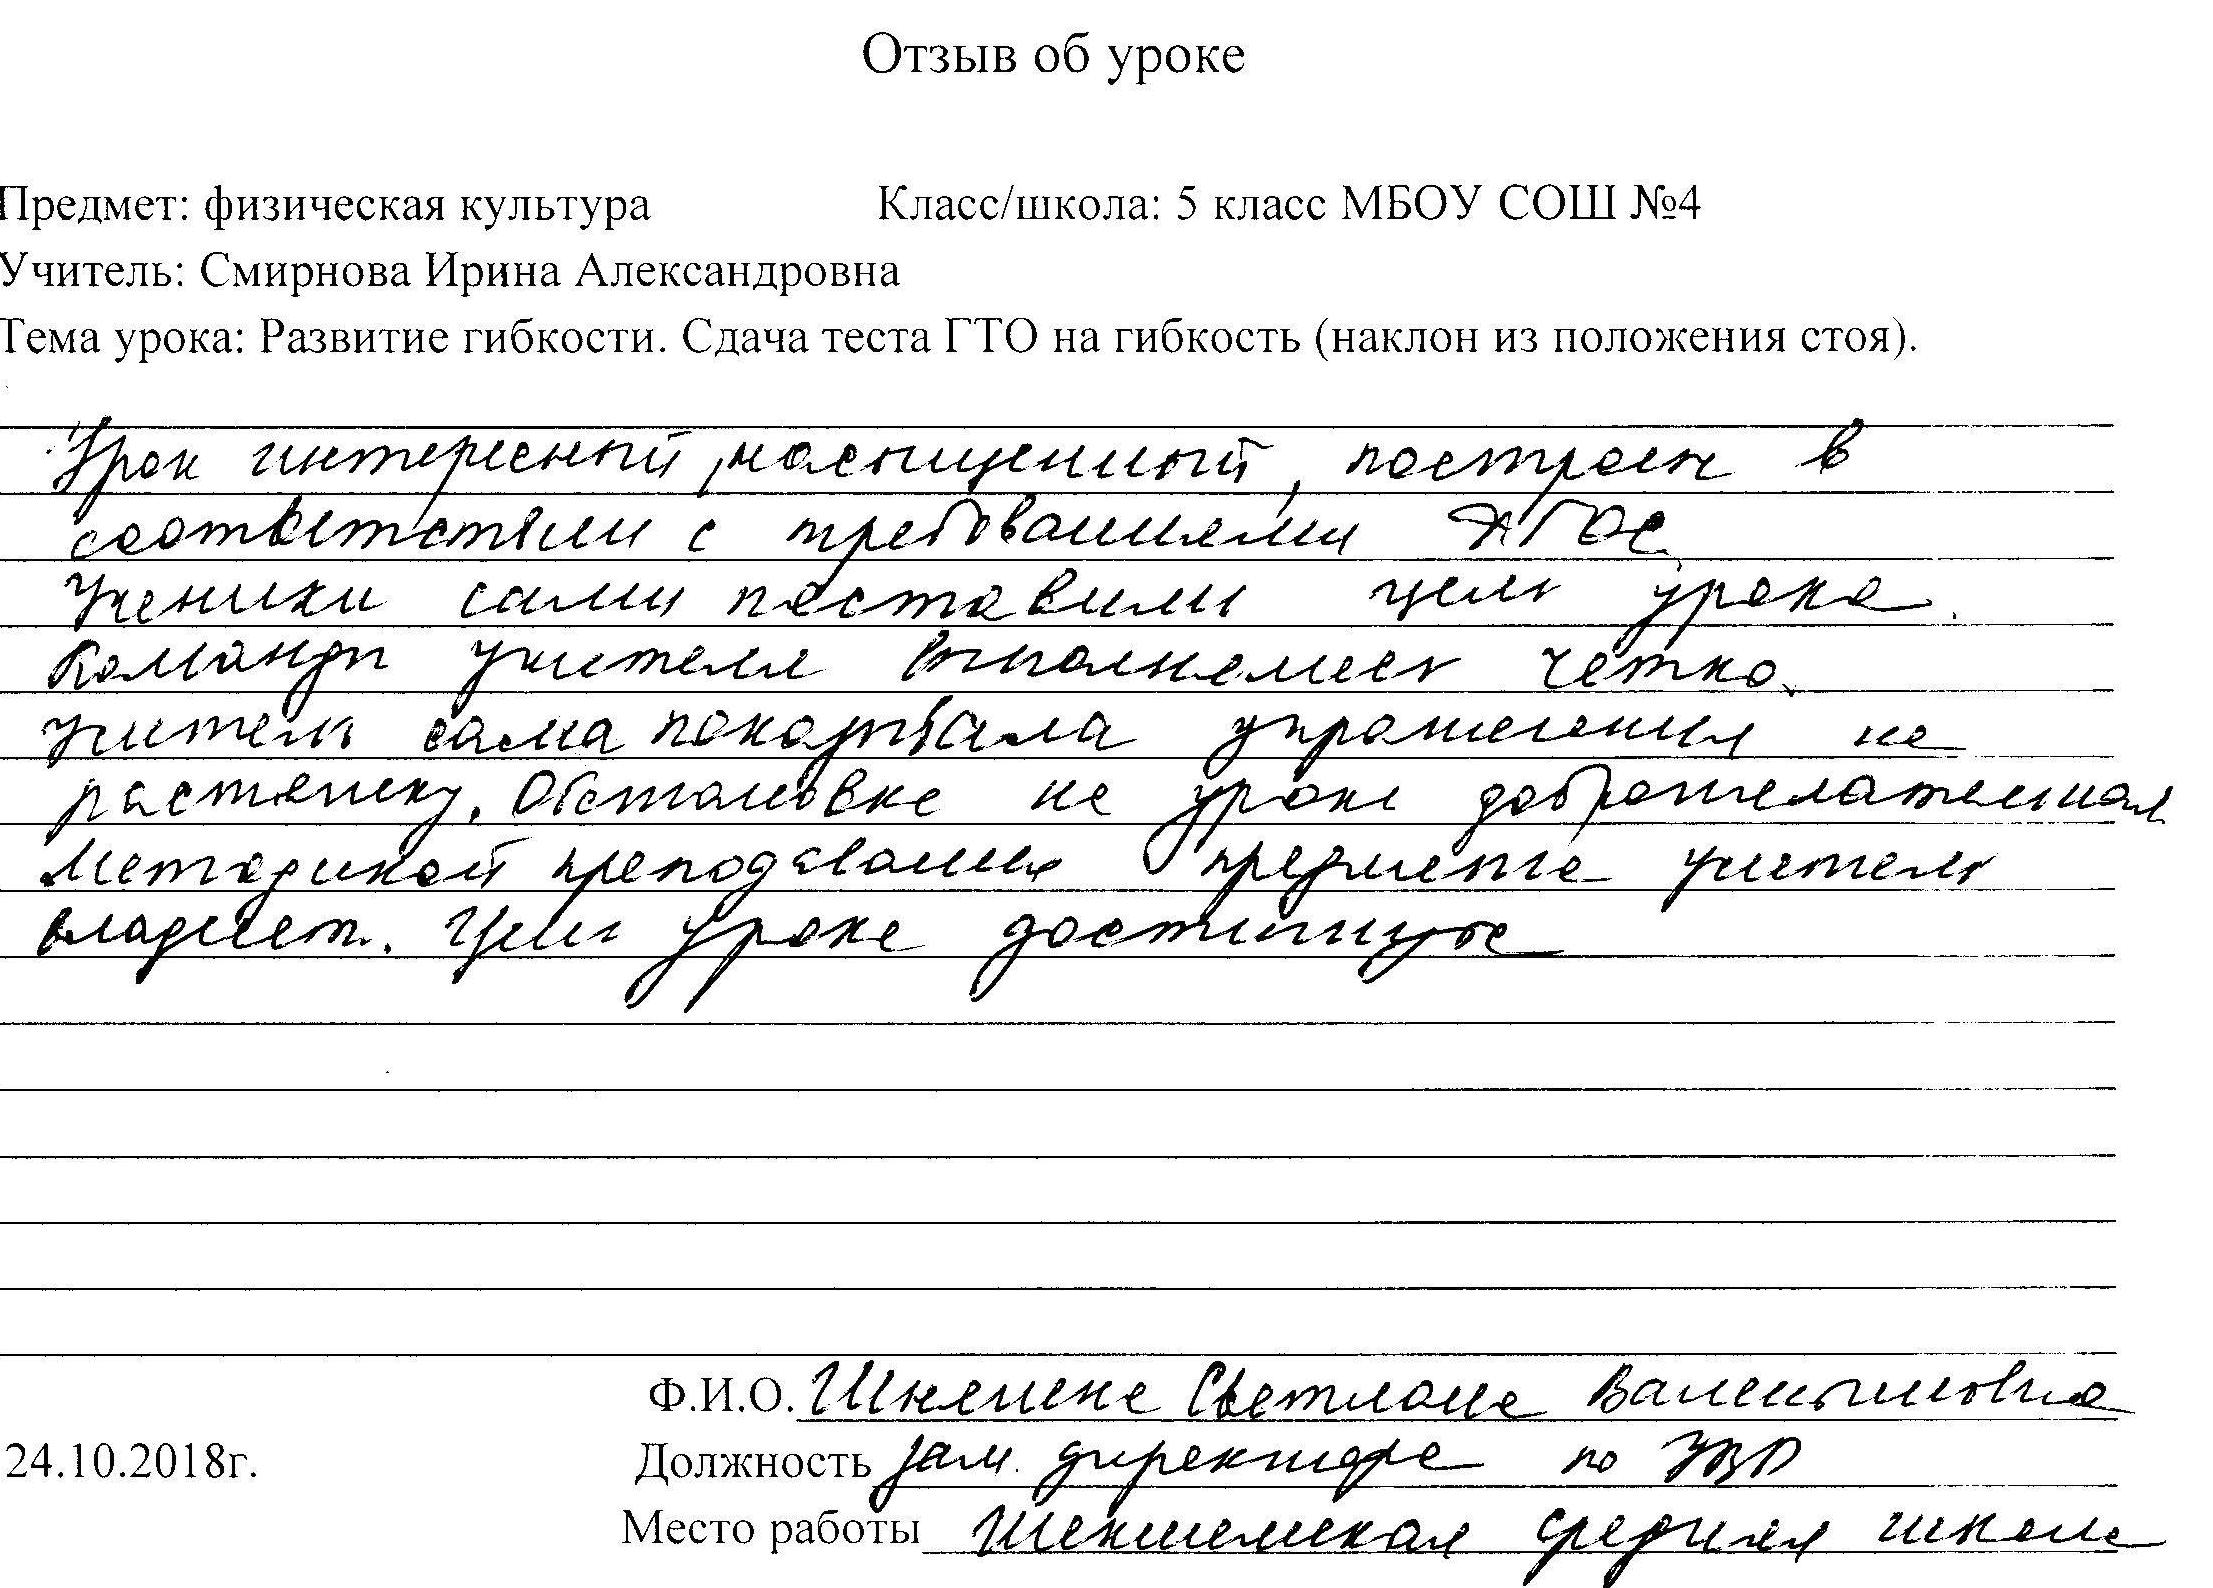 Отзыв об уроке
Предмет: физическая культура Класс/школа: 5 класс МБОУ СОШ №4
Учитель: Смирнова Ирина Александровна
Тема урока: Развитие гибкости. Сдача теста ГТО на гибкость (наклон из положения стоя).
Урок интересный, насыщенный, построен в
соответствии с требованиями ФГОС
Ученики сами поставили цель урока.
Команды учителя выполнялись четко.
Учитель сама показывала упражнения на
растяжку. Обстановка на уроке доброжелательная
Методикой преподавания предмета учитель
владеет. Цели урока достигнуты
Ф.И.О. Светлана Валентиновна
24.10.2018г. Должность зам. директора по УВР
Место работы средняя школа